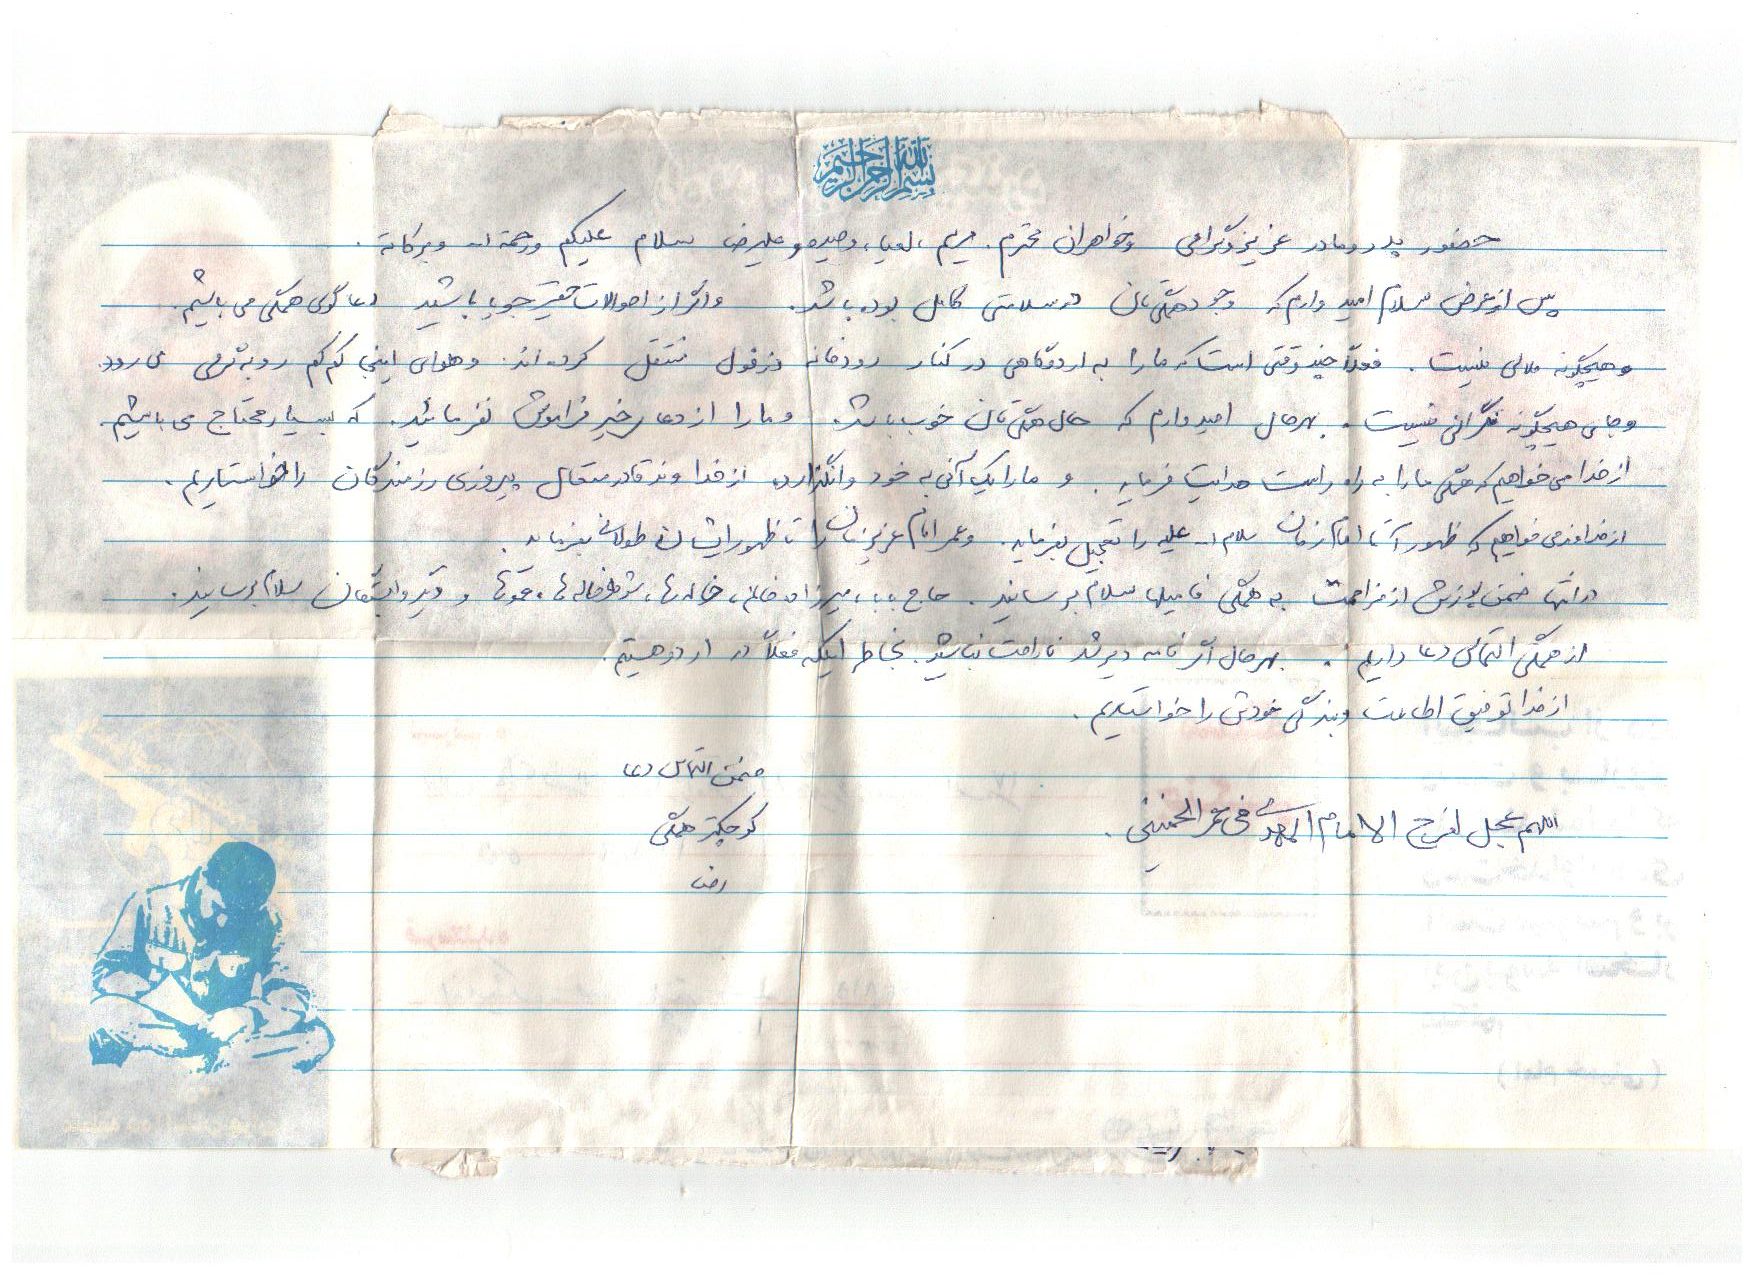 بسم الله الرحمن الرحیم
حضور پدر و مادر عزیز و گرامی و خواهران محترم. مریم، لعیا، وحیده و علیرضا سلام علیکم و رحمة ا... و برکاته.
پس از عرض سلام امیدوارم که وجود همگی‌تان در سلامتی کامل بوده باشد. و اگر از احوالات حقیر جویا باشید دعاگوی همگی می‌باشیم.
و هیچگونه ملالی نیست. فعلاً چند وقتی است که ما را به اردوگاهی در کنار رودخانه دزفول منتقل کرده‌اند. و هوای اینجا کم کم رو به گرمی می رود.
و جای هیچگونه نگرانی نیست. بهرحال امیدوارم که حال همگی‌تان خوب باشد. و ما را از دعای خیر فراموش نفرمائید. که بسیار محتاج می باشیم.
از خدا می‌خواهیم که همگی ما را به راه راست هدایت فرماید. و ما را یک آنی به خود وانگذارد. از خداوند قادر متعال پیروزی رزمندگان را خواستاریم.
از خداوند می‌خواهیم که ظهور آقا امام زمان سلام ا... علیه را تعجیل بفرماید. و عمر امام عزیزمان را تا ظهور ایشان طولانی بفرماید.
در انتها ضمن پوزش از مزاحمت به همگی فامیلها سلام برسانید. حاج بابا، میرزا، خاله‌ها، شوهرخاله‌ها، عموها و دیگر وابستگان سلام برسانید.
از همگی التماس دعا داریم. بهرحال اگر نامه دیر شد ناراحت نباشید. بخاطر اینکه فعلاً در اردو هستیم.
از خدا توفیق اطاعت و بندگی خودش را خواستاریم.
ضمن التماس دعا
اللهم عجل لفرج الامام المهدی فی عمر الخمینی.
کوچکتر همگی
رضا